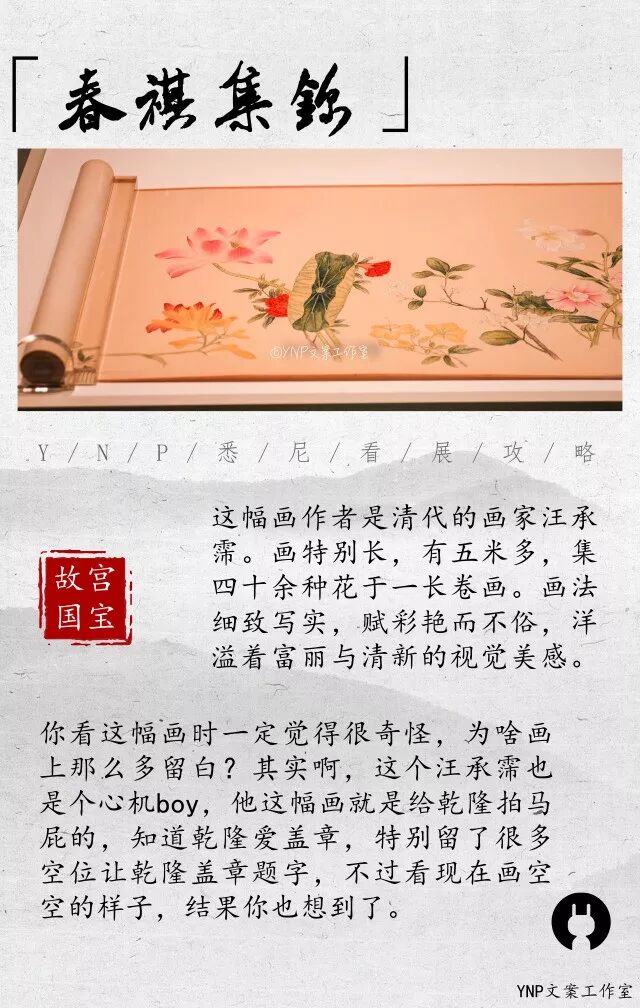 「春祺集錦」
©YNP文案工作室
Y/N/P/悉/尼/看/展/攻/略
这幅画作者是清代的画家汪承
霈。画特别长，有五米多，集
四十余种花于一长卷画。画法
细致写实，赋彩艳而不俗，洋
溢着富丽与清新的视觉美感。
故宫
国宝
你看这幅画时一定觉得很奇怪，为啥画
上那么多留白？其实啊，这个汪承霈也
是个心机boy，他这幅画就是给乾隆拍马
屁的，知道乾隆爱盖章，特别留了很多
空位让乾隆盖章题字，不过看现在画空
空的样子，结果你也想到了。
YNP文案工作室